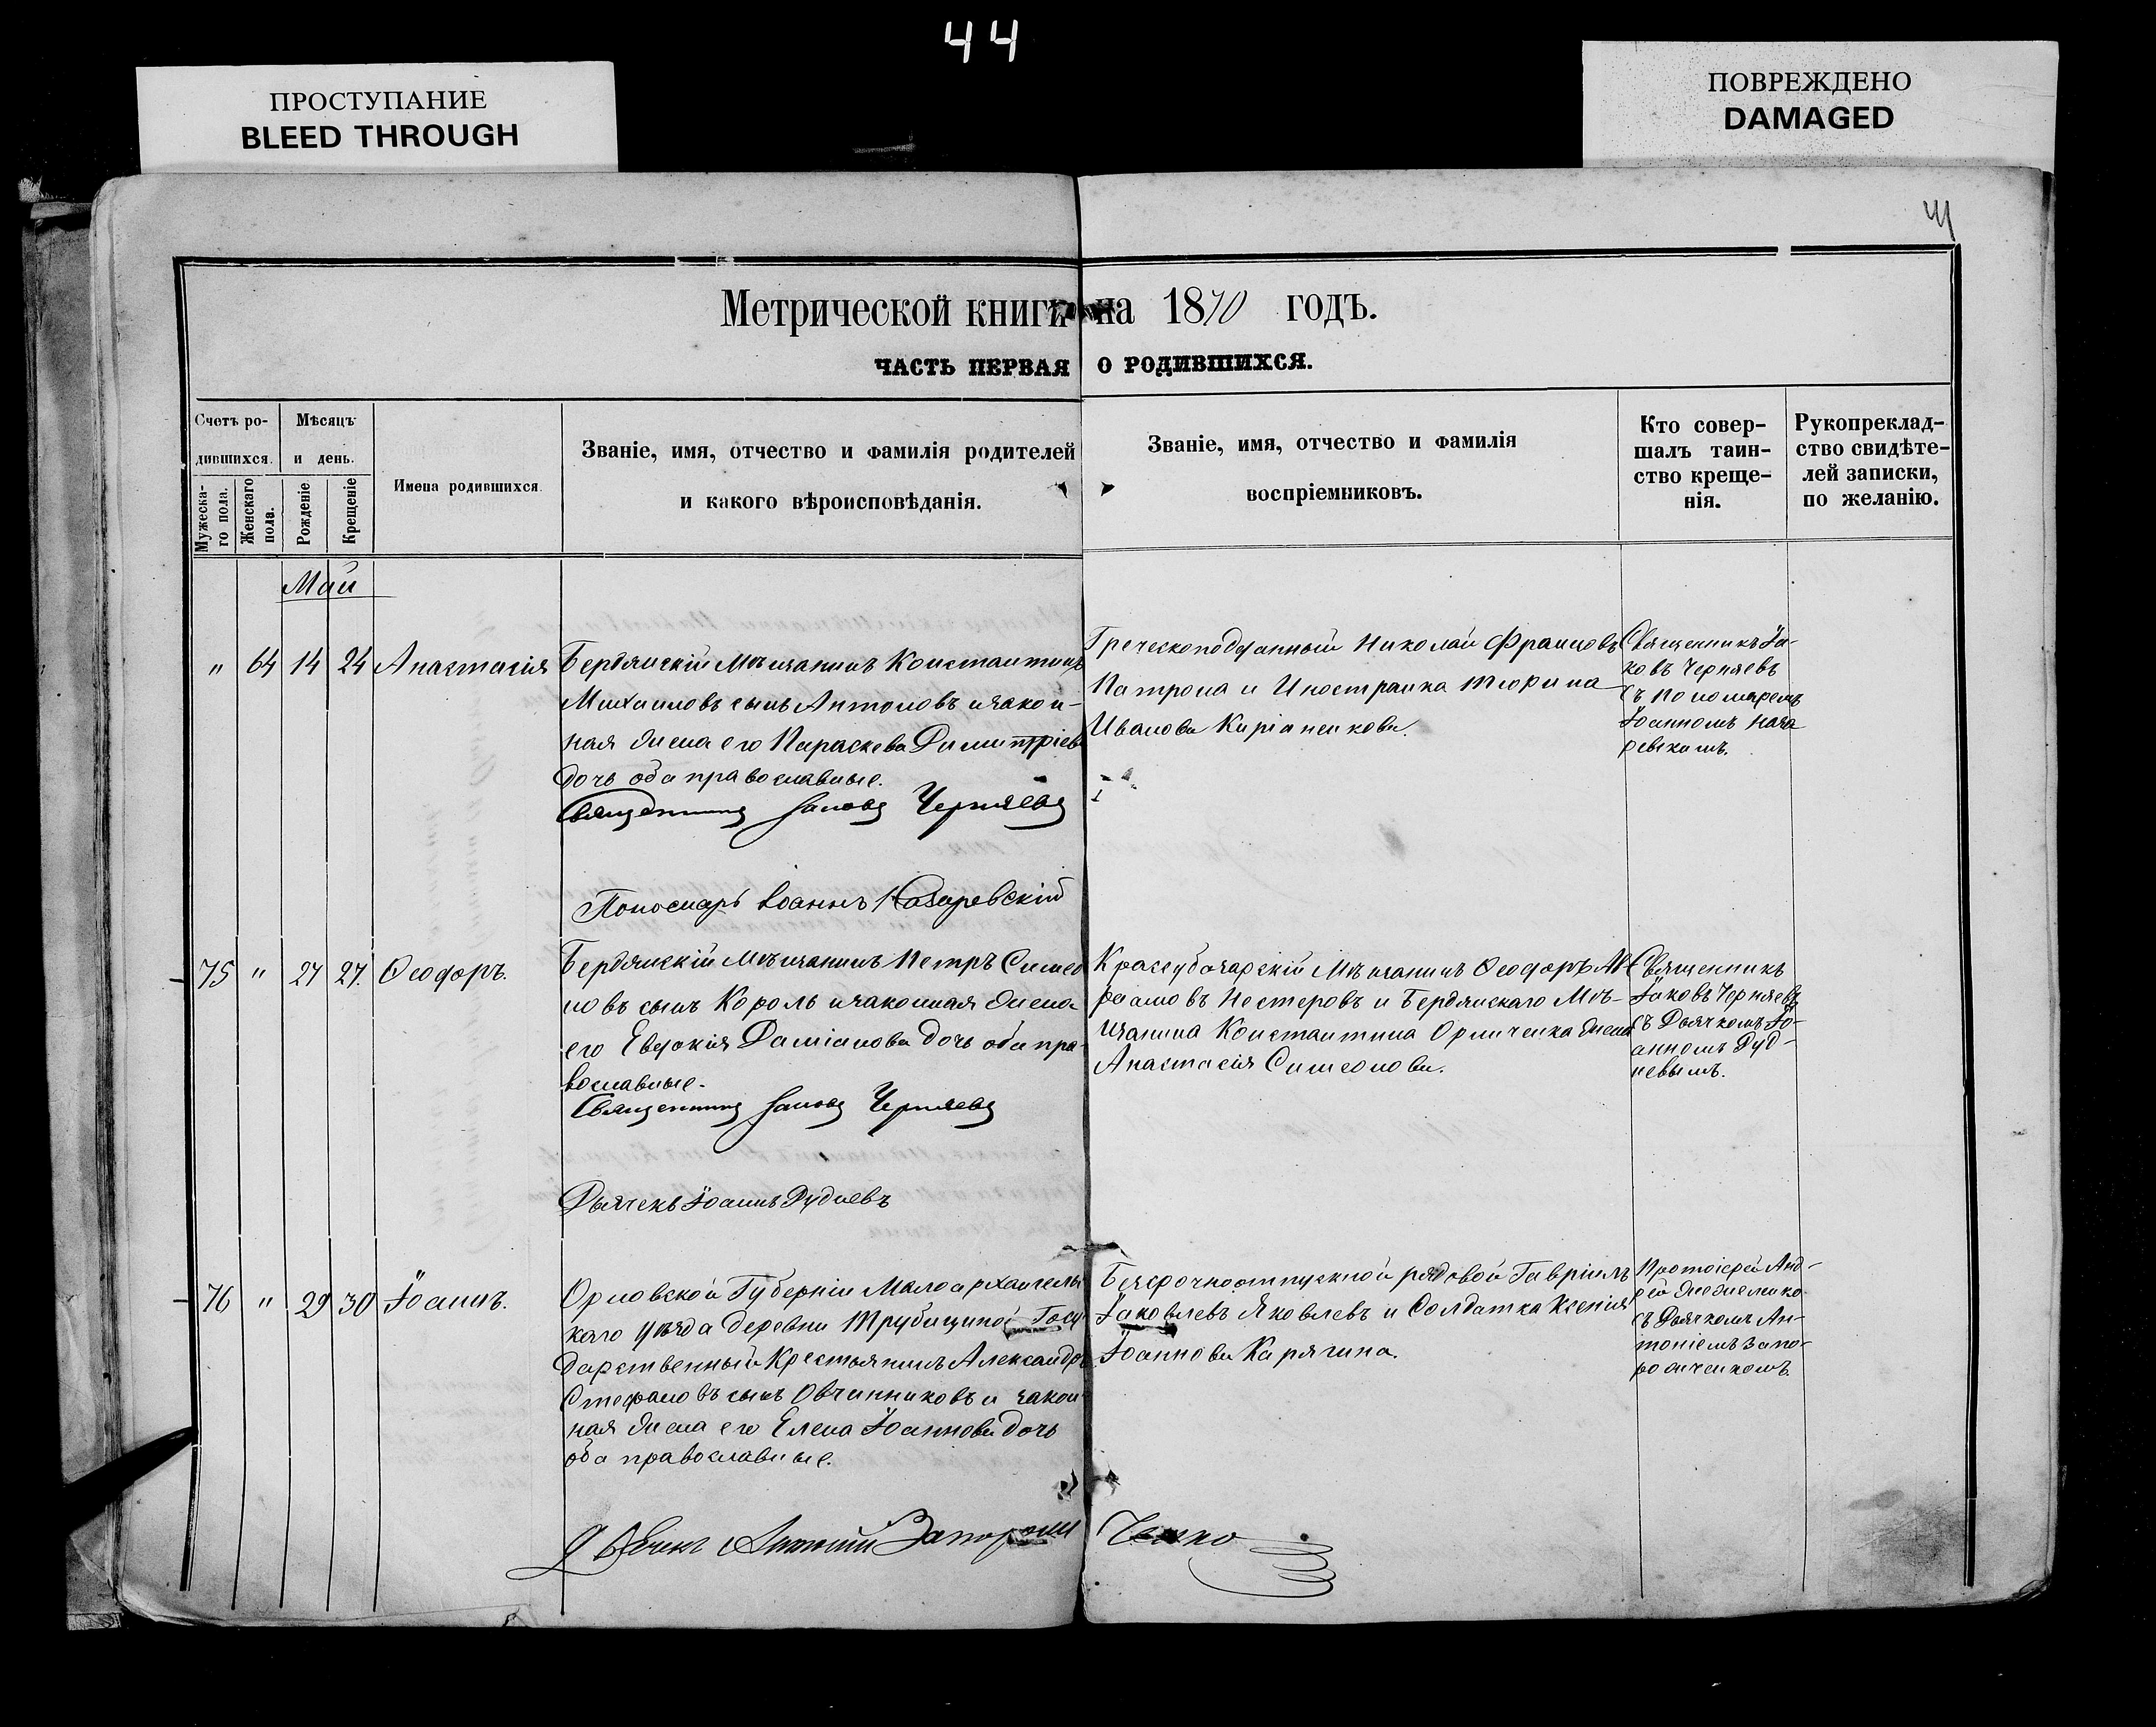 44
ПРОСТУПАНИЕ
BLEED THROUGH
ПОВРЕЖДЕНО
DAMAGED
Метрической книги на 1870 годъ.
ЧАСТЬ ПЕРВАЯ О РОДИВШИХСЯ.
Счетъ ро-
дившихся.
Мужеска-
го пола.
Женскаго
пола.
Мѣсяцъ
и день.
Рожденіе
Крещеніе
Имена родившихся
Званіе, имя, отчество и фамилія родителей
и какого вѣроисповѣданія.
Званіе, имя, отчество и фамилія
воспріемниковъ.
Кто совер-
шалъ таин-
ство креще-
нія.
Рукопреклад-
ство свидѣте-
лей записки,
по желанію.
Май
" 64 14 24 Анастасія
Бердянскій Мѣщанинъ Константинъ
Михаиловъ сынъ Антоновъ и закон-
ная жена его Параскева Димитріева
дочь оба православные.
Священникъ Іаковъ Черняевъ
Пономарь Іоаннъ Назаревскій
Греческоподданный Николай Францовъ
Патрона и Иностранка
Иванова
Священникъ Іа-
ковъ Черняевъ
съ Пономаремъ
Іоанномъ Наза
ревскимъ.
75 " 27 27. Ѳеодоръ.
Бердянскій Мѣщанинъ Петръ Симео
новъ сынъ Король и законная жена
его Евдокія Даміанова дочь оба пра-
вославные.
Священникъ Іаковъ Черняевъ
Дьячекъ Іоаннъ Рудневъ
Мѣщанинъ Ѳеодоръ Ав
раамовъ Нестеровъ и Бердянскаго Мѣ-
щанина Константина жена
Анастасія Симеонова.
Священникъ
Іаковъ Черняевъ
съ Дьячкомъ Іо-
анномъ Руд-
невымъ.
76 " 29 30 Іоаннъ.
Орловской Губерніи Малоархангель
каго уѣзда деревни Трубициной Госу-
дарственный Крестьянинъ Александръ
Стефановъ сынъ Овчинниковъ и закон-
ная жена его Елена Іоаннова дочь
оба православные.
Дьячекъ Антоній Запорож ченко
Безсрочноотпускной рядовой Гавріилъ
Іаковлевъ Яковлевъ и Солдатка Ксенія
Іоаннова Карягина.
Протоіерей Анд-
рей
съ Дьячкомъ Ан-
тоніемъ Запо-
рожченкомъ.